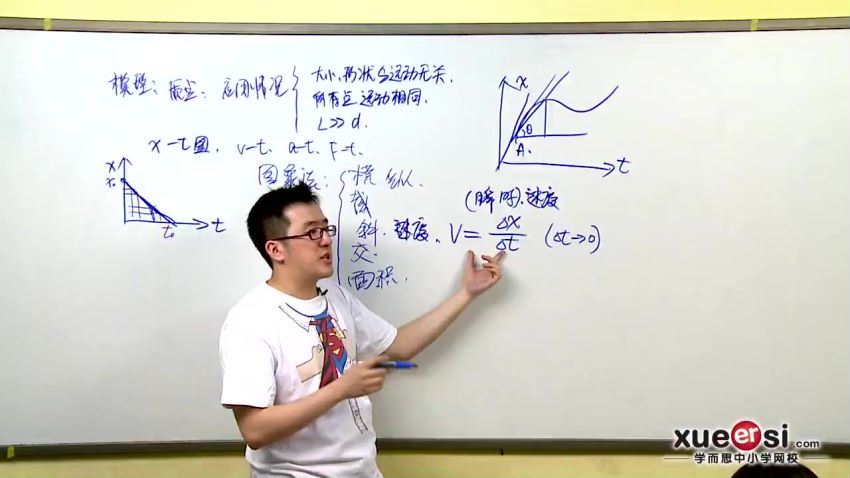 模型：质点：应用情况
大小、形状与运动无关.
所有点运动相同.
L>>d.
x-t图, v-t、a-t、F-t.
图象法：
横 纵.
截
斜. 速度.
交.
面积.
(瞬时)速度
V=Δx/Δt (Δt→0)
x
x₀
t₀
t
x
θ
A.
t
xueersi.com
学而思中小学网校